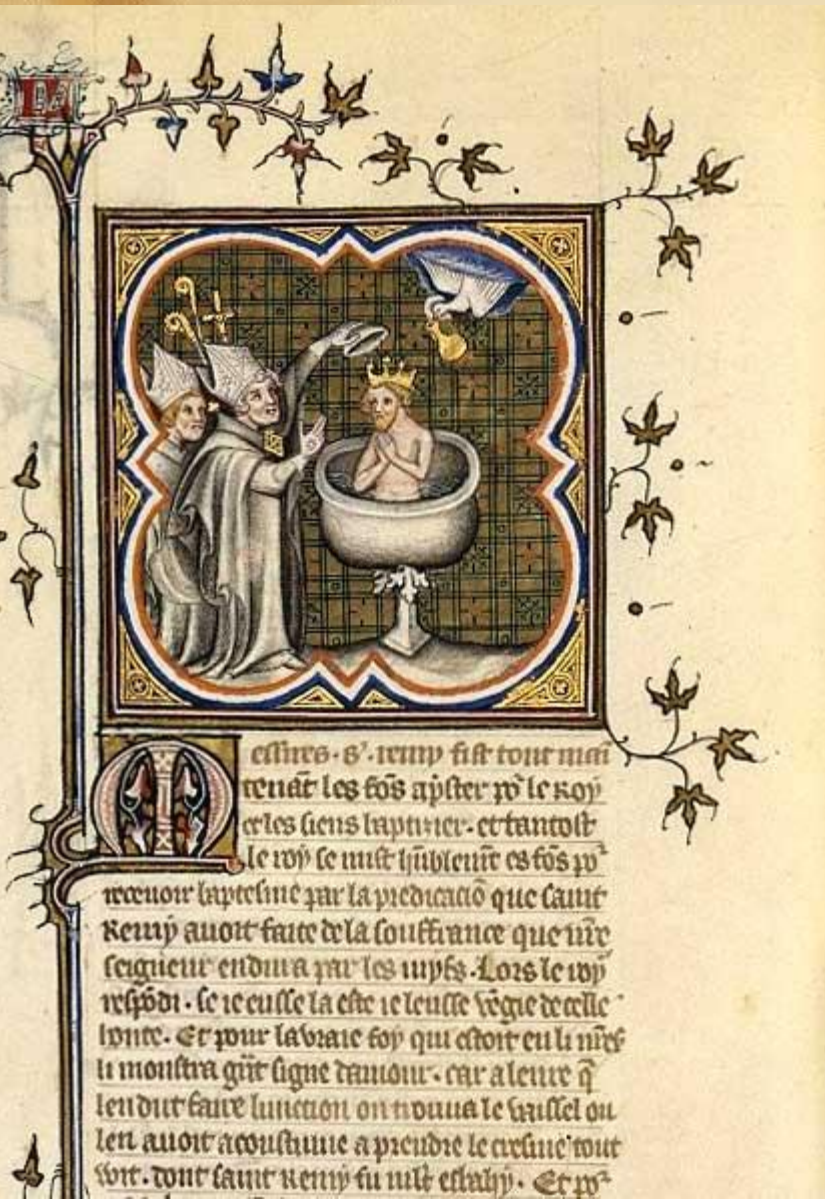 Messires. s'. remy fist tout main
tenāt les fōs ap̄ster po' le Roy
et les siens baptizier. et tantost
le roy se mist hūblemēt es fōs po'
recevoir baptesme par la predicaciō que saint
Remy avoit faite de la souffrance que nr̄e
seigneur endura par les juyfs. Lors le roy
respōdi. se ie eusse la este ie leusse vēgie de celle
honte. Et pour la vraie foy qui estoit en li nr̄es
li monstra grāt signe damour. car a leure q̄
len dut faire lunction on trouva le vaissel ou
len avoit acoustume a prendre le cresme tout
wit. dont saint Remy fu mlt esbahy. Et po'